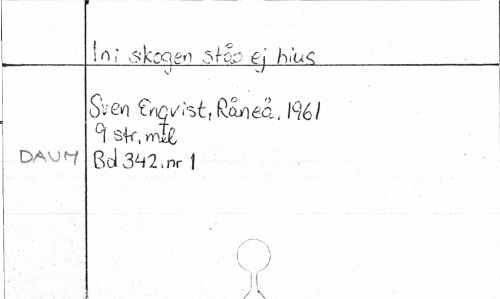 Ini skogen ståo ej hius
Sven Enqvist, Råneå, 1961
9 str, mel
DAUM Bd 342, nr 1